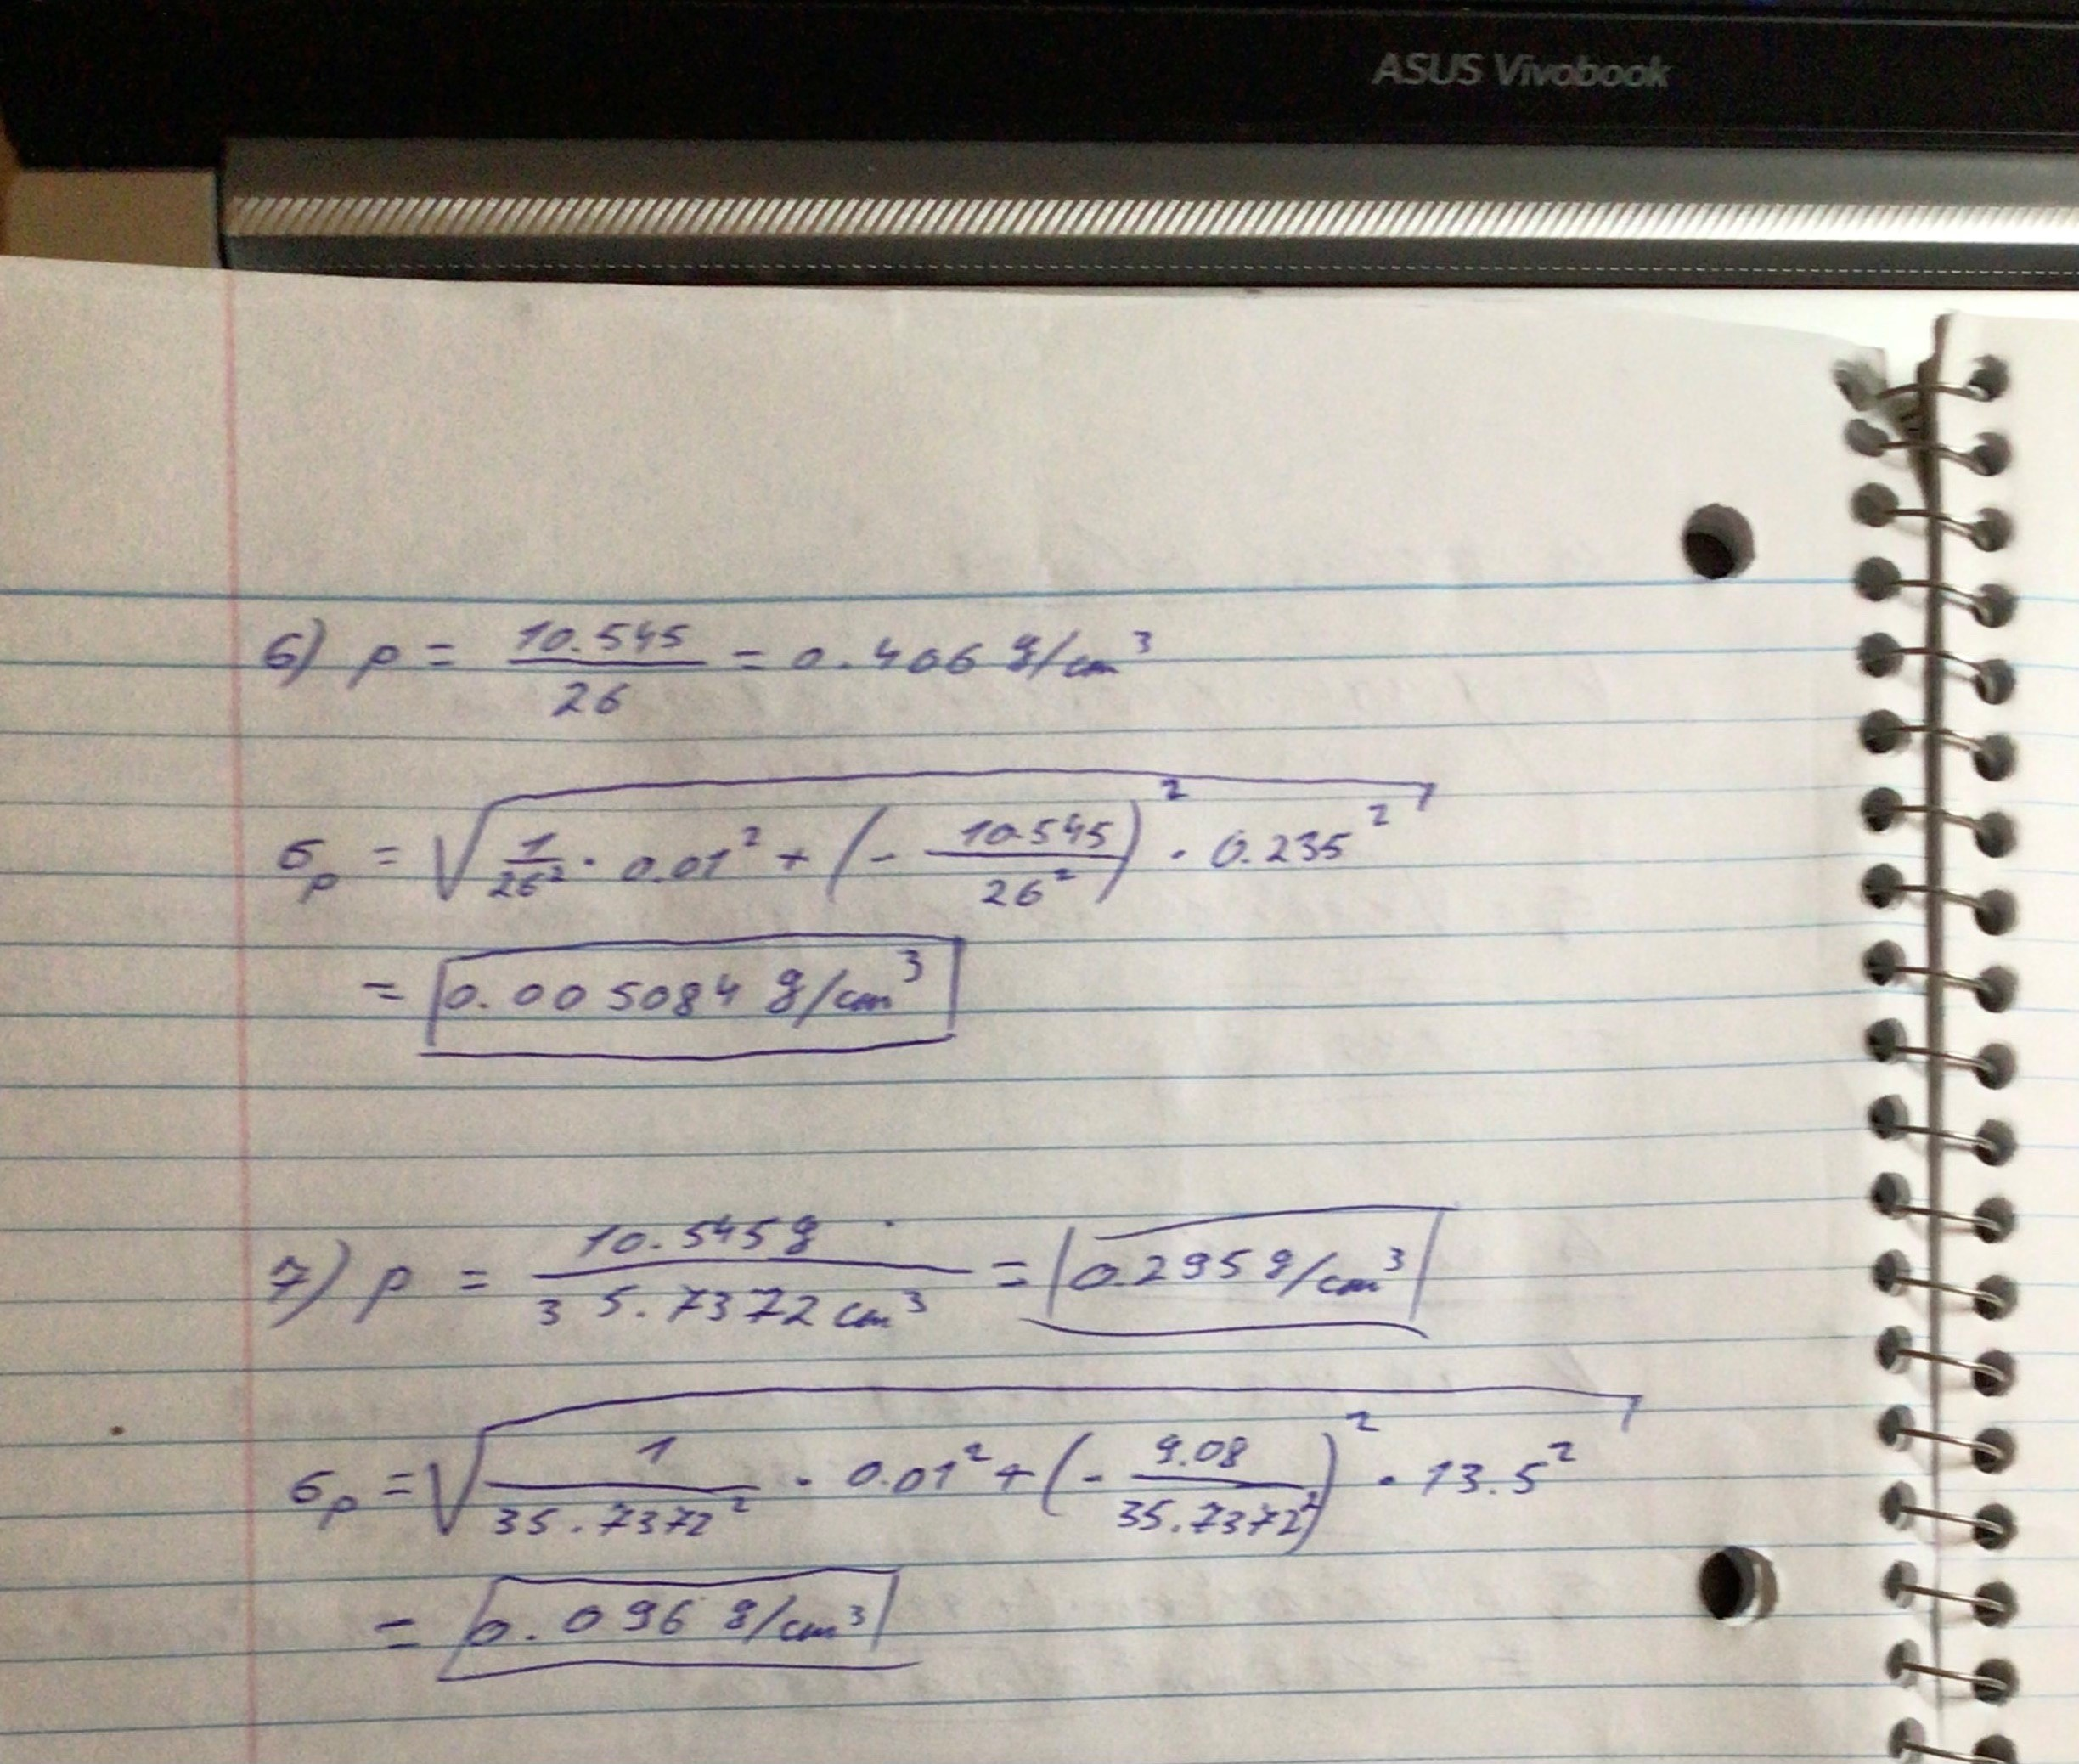 ASUS Vivobook
6) ρ = 10.545/26 = 0.406 g/cm³
σρ = √(1/26² · 0.01² + (- 10.545/26²)² · 0.235²)
= 0.005084 g/cm³
7) ρ = 10.545g/35.7372cm³ = 0.295g/cm³
σρ = √(1/35.7372² · 0.01² + (- 9.08/35.7372²)² · 13.5²)
= 0.096 g/cm³